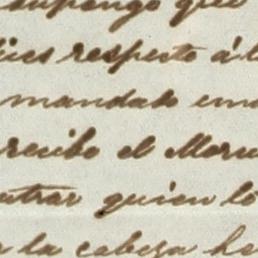 supongo que
respecto á l
mandado em
recibo el Merc
quien lo
la cabeza he